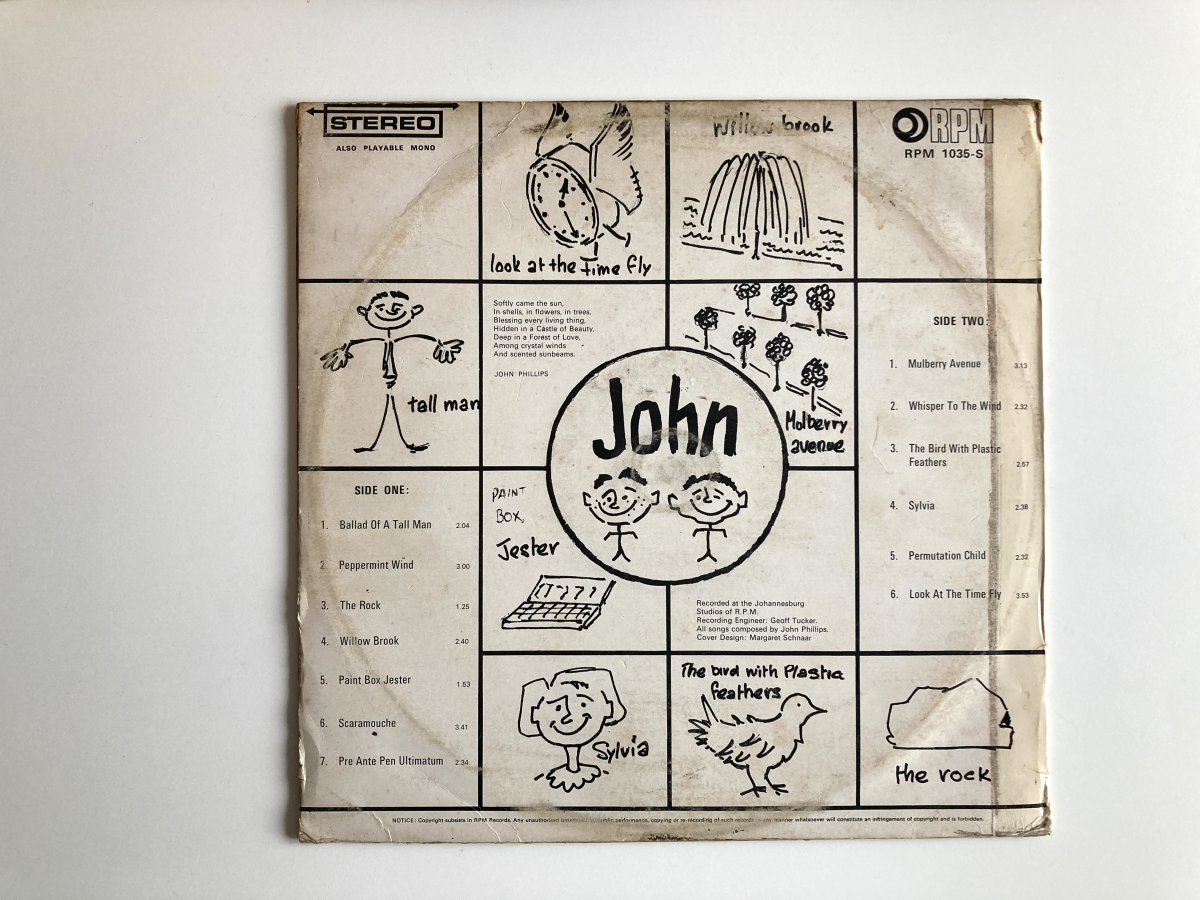 STEREO
ALSO PLAYABLE MONO
look at the time fly
Willow brook
RPM
RPM 1035-S
tall man
Softly came the sun,
In shells, in flowers, in trees,
Blessing every living thing,
Hidden in a Castle of Beauty,
Deep in a Forest of Love,
Among crystal winds
And scented sunbeams.
JOHN PHILLIPS
Molberry
avenue
John
SIDE ONE:
1. Ballad Of A Tall Man 2.04
2. Peppermint Wind 3.00
3. The Rock 1.25
4. Willow Brook 2.40
5. Paint Box Jester 1.53
6. Scaramouche 3.41
7. Pre Ante Pen Ultimatum 2.34
PAINT
BOX,
Jester
SIDE TWO:
1. Mulberry Avenue 3.13
2. Whisper To The Wind 2.32
3. The Bird With Plastic
Feathers 2.57
4. Sylvia 2.38
5. Permutation Child 2.32
6. Look At The Time Fly 3.53
Recorded at the Johannesburg
Studios of R.P.M.
Recording Engineer: Geoff Tucker.
All songs composed by John Phillips.
Cover Design: Margaret Schnaar
Sylvia
The bird with Plastic
feathers
the rock
NOTICE: Copyright subsists in RPM Records. Any unauthorised public performance, copying or re-recording of such records in any manner whatsoever will constitute an infringement of copyright and is forbidden.